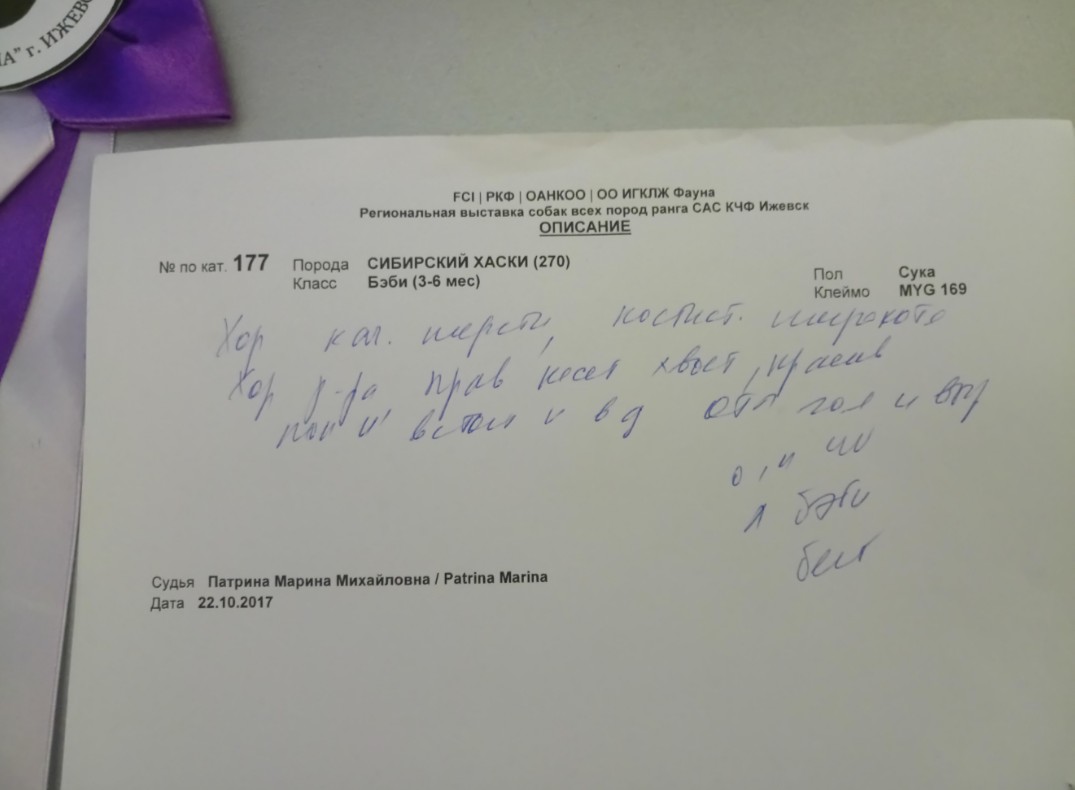 НА" г. ИЖЕВС
FCI | РКФ | ОАНКОО | ОО ИГКЛЖ Фауна
Региональная выставка собак всех пород ранга САС КЧФ Ижевск
ОПИСАНИЕ
№ по кат. 177 Порода СИБИРСКИЙ ХАСКИ (270) Пол Сука
Класс Бэби (3-6 мес) Клеймо MYG 169
Хор кач. шерсти, костист.
Хор р-ра прав несет хвост, красив
в стои и в д отл гол и выр
о, п
л бэби
бест
Судья Патрина Марина Михайловна / Patrina Marina
Дата 22.10.2017